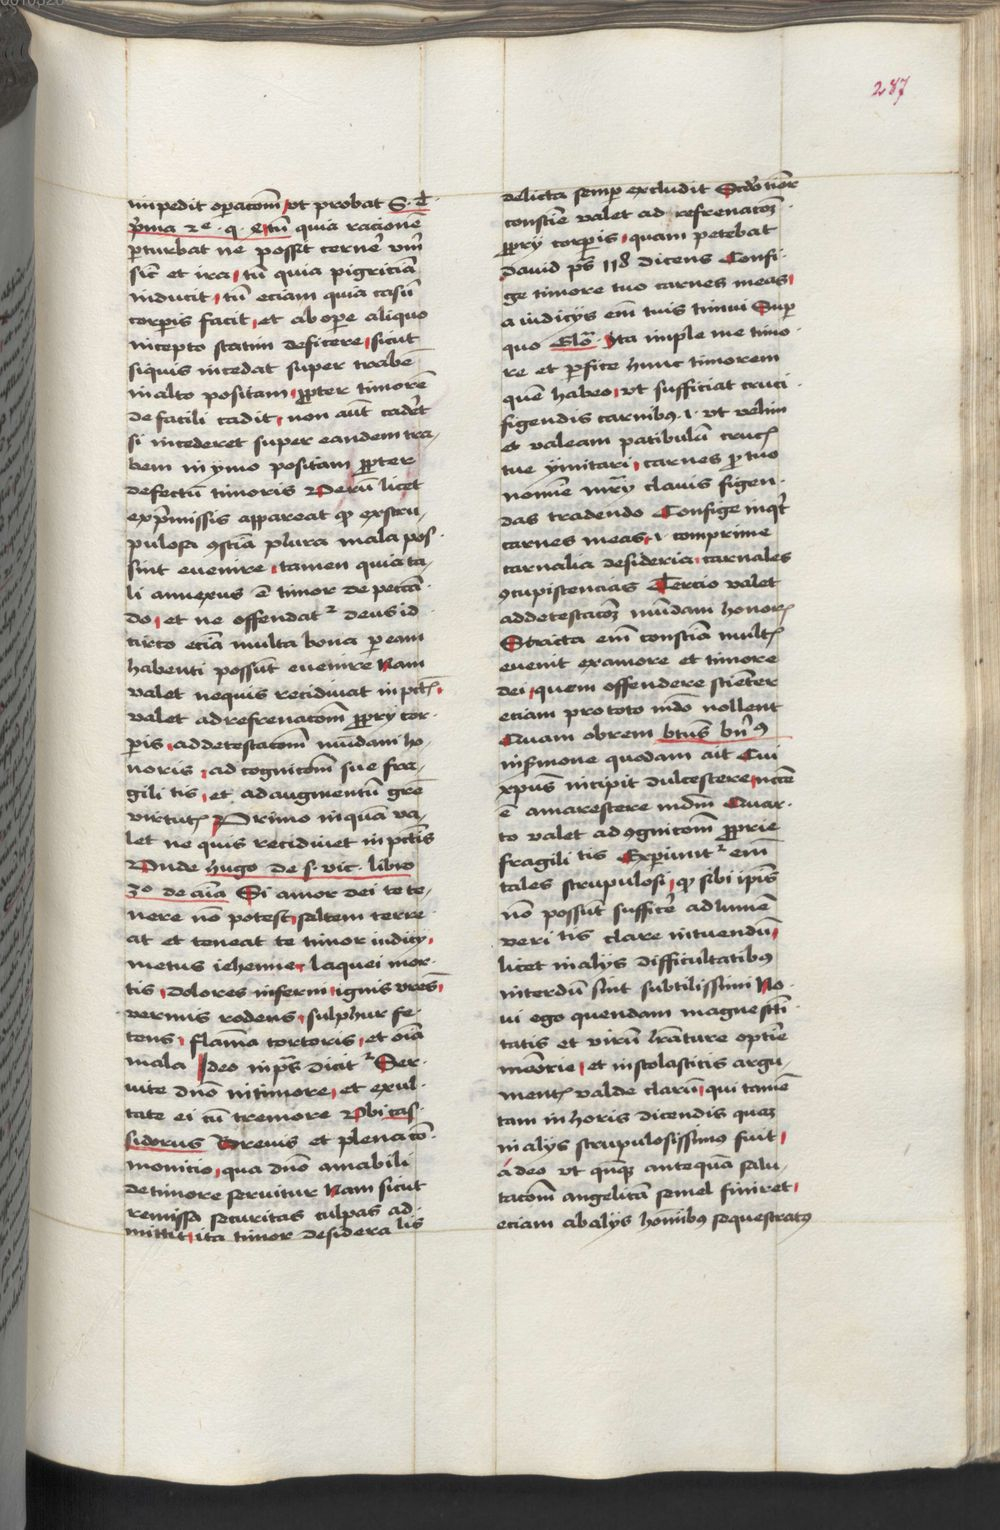 287
impedit operacōm vt probat S. t͞
pͥma 2e. q. e. tū quia racionē
perturbat ne possit cernēr vim̄
sic̄ et ira tū quia pigriciā
inducit tū eciam quia casū
corperis facit et ab ope aliquo
incepto statim deficere sicut
siquis incedat super trabē
in alto positam ꝓpter timorē
de facili cadit non aūt cadēt
si incederet super eandem tra-
bem in ymo positam ꝓpter
defectū timoris Verū licet
ex pͥmissis appareat ꝙ ex scru-
pulosa ꝯsciā plura mala pos-
sint euenire tamen quia ta-
li annexus ē timor de peccā
do et ne offendatͬ deus id
circo eciā multa bona per eam
habenti possūt euenire Nam
valet nequis recidiuat in pctꝭ
valet ad refrenacōm ꝓprij cor-
peris ad detestacōm mūdani ho-
noris ad cognicōm sue fra-
gili tis et ad augmentū grē
virtutꝭ Primo in quā va-
let ne quis recidiuet in pctīs
Vnde hugo de s. vic. libro
3o de aīa Si amor dei te te-
nere nō potest saltem terre
at et teneat te timor iudicij
metus iehenne laquei mor-
tis dolores inferni ignis vrēs
vermis rodens sulphur fe-
tens flāma tortoris et oīa
mala Ideo in ps̄ dicitͬ Ser-
uite dnō in timore et exul-
tate ei cū tremore Vbi cas-
siodorus Breuis et plena cō-
monicio qua dnō amabili
de timore seruitur Nam sicut
remissa securitas culpas ad-
mittit ita timor desidera lis
delicta semp excludit Scdo timor
conscīe valet ad refrenacōꝫ
ꝓprij corperis quam petebat
dauid pš 118 dicens Confi-
ge timore tuo carnes meas
a iudicijs em̄ tuis timui Sup
quo Glō. Ita imple me timo-
re et perfice hunc timorem
quē habeo vt sufficiat cruci-
figendis carnibꝰ .i. vt velim
et valeam patibulū crucꝭ
tue ymitari carnes ꝓ tuo
nomīe mr̄ij clauis figen-
das tradendo Confige inqͭ
carnes meas .i. comprime
carnalia desideria carnales
ꝯcupiscencias Tercio valet
ad detestacōꝫ mūdani honorꝭ
Stricta em̄ consciā multꝭ
euenit ex amore et timore
dei quem offendere scienter
eciam pro toto mdo nollent
Quam obrem btūs bn̄ꝰ
in sermone quodam ait Cui
xpūs incipit dulcescere necē
ē amarescere mdm̄ Quar-
to valet ad ꝯgnicōm ꝓprie
fragili tis Expiunͬt em̄
tales scrupulosi ꝙ sibi ipīs
nō possūt sufficēr ad lumē
veri tis clare intuendū
licet in alijs difficultatibꝰ
interdū sint subtilissimi No-
ui ego quendam magne sctī-
tatis et virū lrāture optīe
memorie et in scolasticis argu-
mentꝭ valde clarū qui tamē
tam in horis dicendis quaꝫ
in alijs scrupulosissimus fuit
adeo vt qn̄qꝫ antequā salu-
tacōm angelicā semel finiret
eciam ab alijs homībꝰ sequestratꝰ